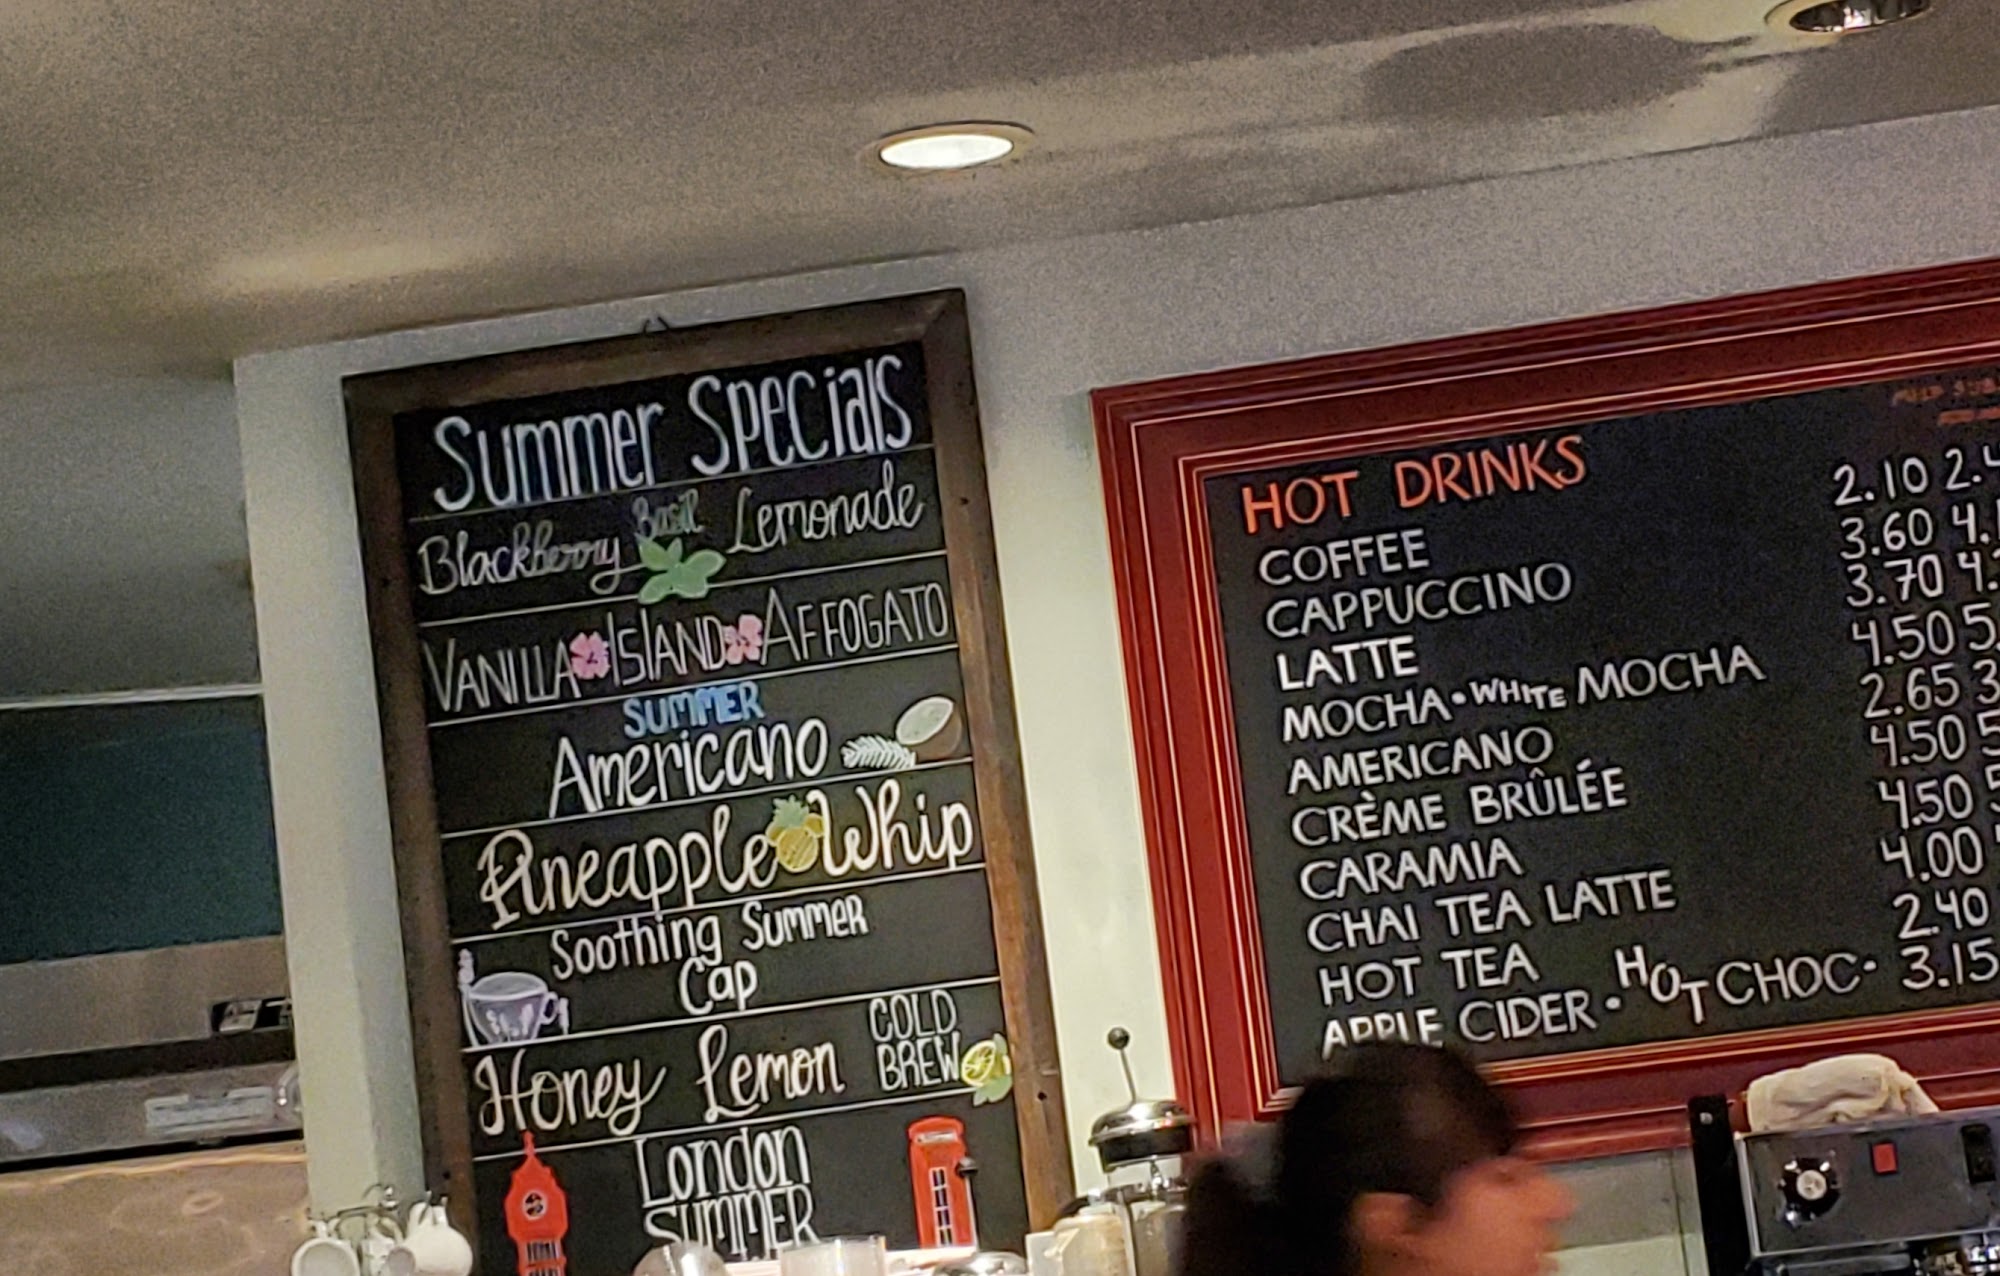 Summer Specials
Blackberry Basil Lemonade
VANILLA ISLAND AFFOGATO
SUMMER
Americano
Pineapple Whip
Soothing Summer
Cap
Honey Lemon COLD
BREW
London
SUMMER
HOT DRINKS
COFFEE 2.10 2.4
CAPPUCCINO 3.60 4.
LATTE 3.70 4.
MOCHA • WHITE MOCHA 4.50 5.
AMERICANO 2.65 3
CRÈME BRÛLÉE 4.50 5
CARAMIA 4.50 5
CHAI TEA LATTE 4.00
HOT TEA 2.40
APPLE CIDER • HOT CHOC • 3.15